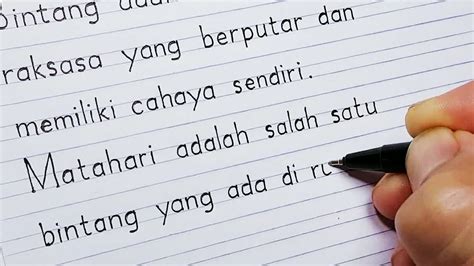 bintang
raksasa yang berputar dan
memiliki cahaya sendiri.
Matahari adalah salah satu
bintang yang ada di ru